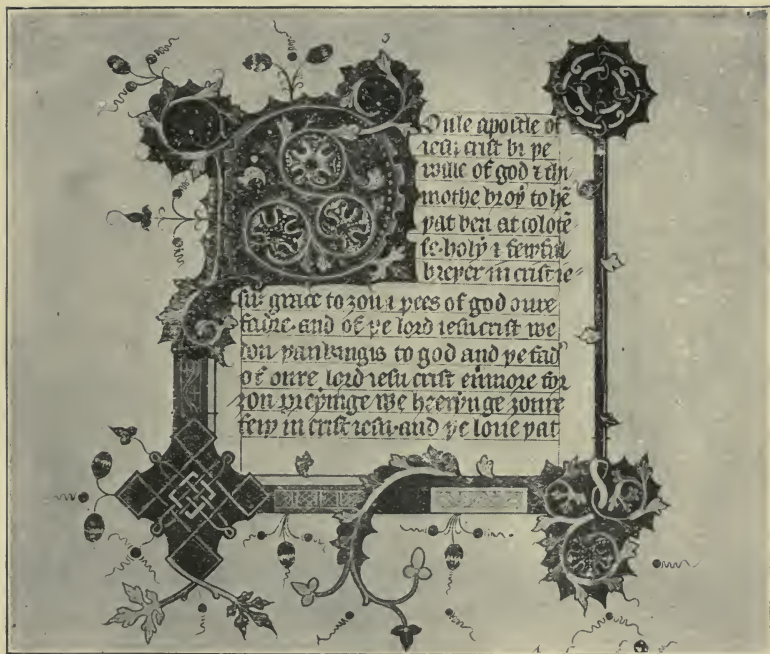 Poule apostle of
iesu crist bi þe
wille of god ⁊ thi
mothe broþ to hē
þat ben at coloce
se holy ⁊ feiþful
breþer in crist ie
su grace to ȝou ⁊ pees of god oure
fadre · and of þe lord iesu crist we
don þankingis to god and þe fad'
of oure lord iesu crist eūmore for
ȝou preyinge we heerynge ȝoure
feiþ in crist iesu · and þe loue þat